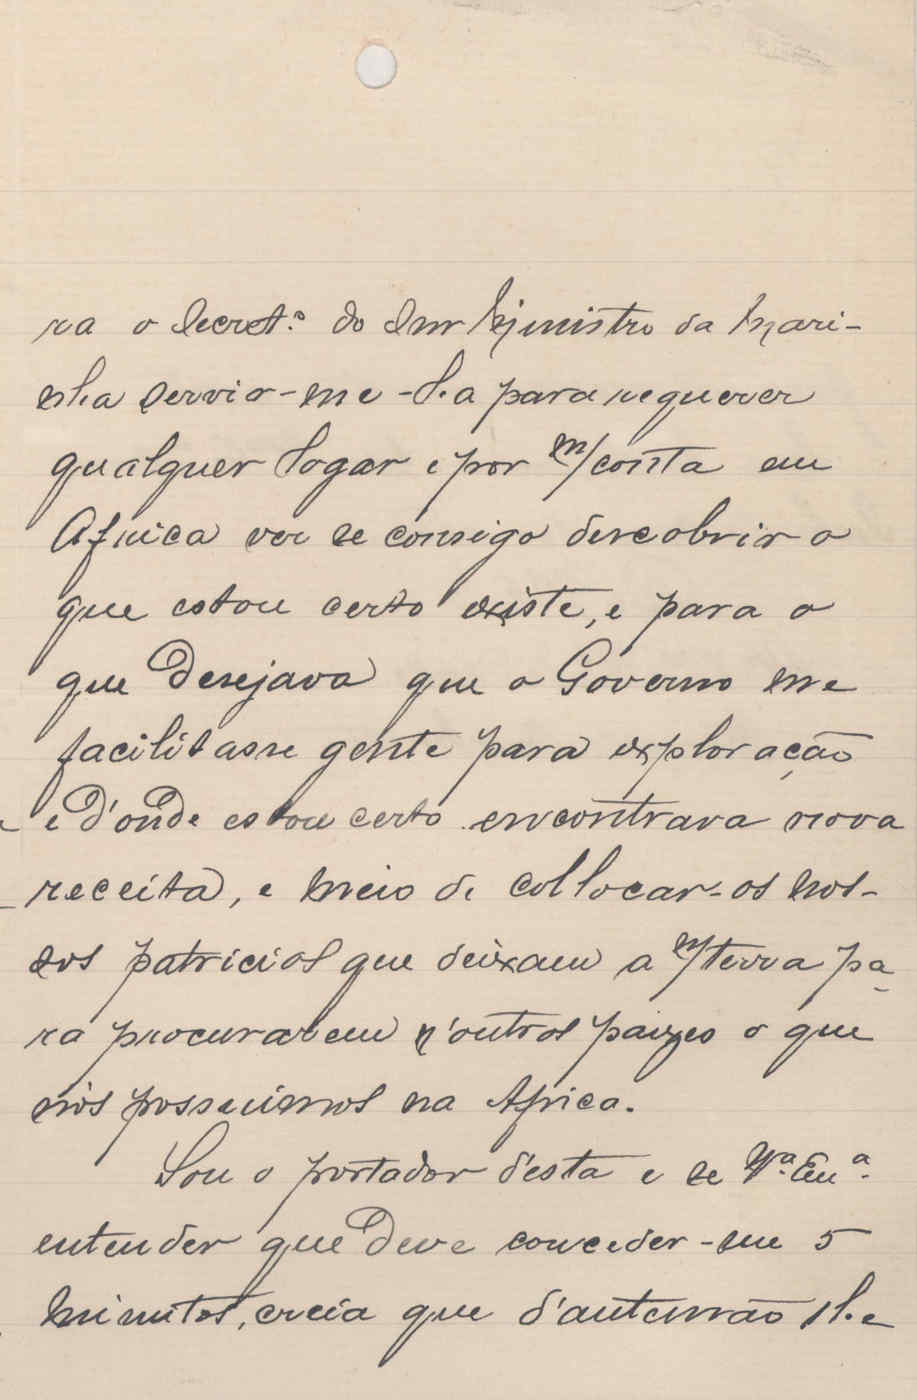 ra o Secret.º do Snr Ministro da Mari-
nha servir-me-ha para requerer
qualquer logar e por m/conta em
Africa ver se consigo descobrir o
que estou certo existe, e para o
que desejava que o Governo me
facilitasse gente para exploração
e d'onde estou certo encontrava nova
receita, e meio de collocar-os nos-
sos patricios que deixam a m/terra pa-
ra procurarem n'outros paizes o que
nós possuimos na Africa.
Sou o portador d'esta e se V.ª Em.ª
entender que deve conceder-me 5
minutos, creia que d'antemão lhe